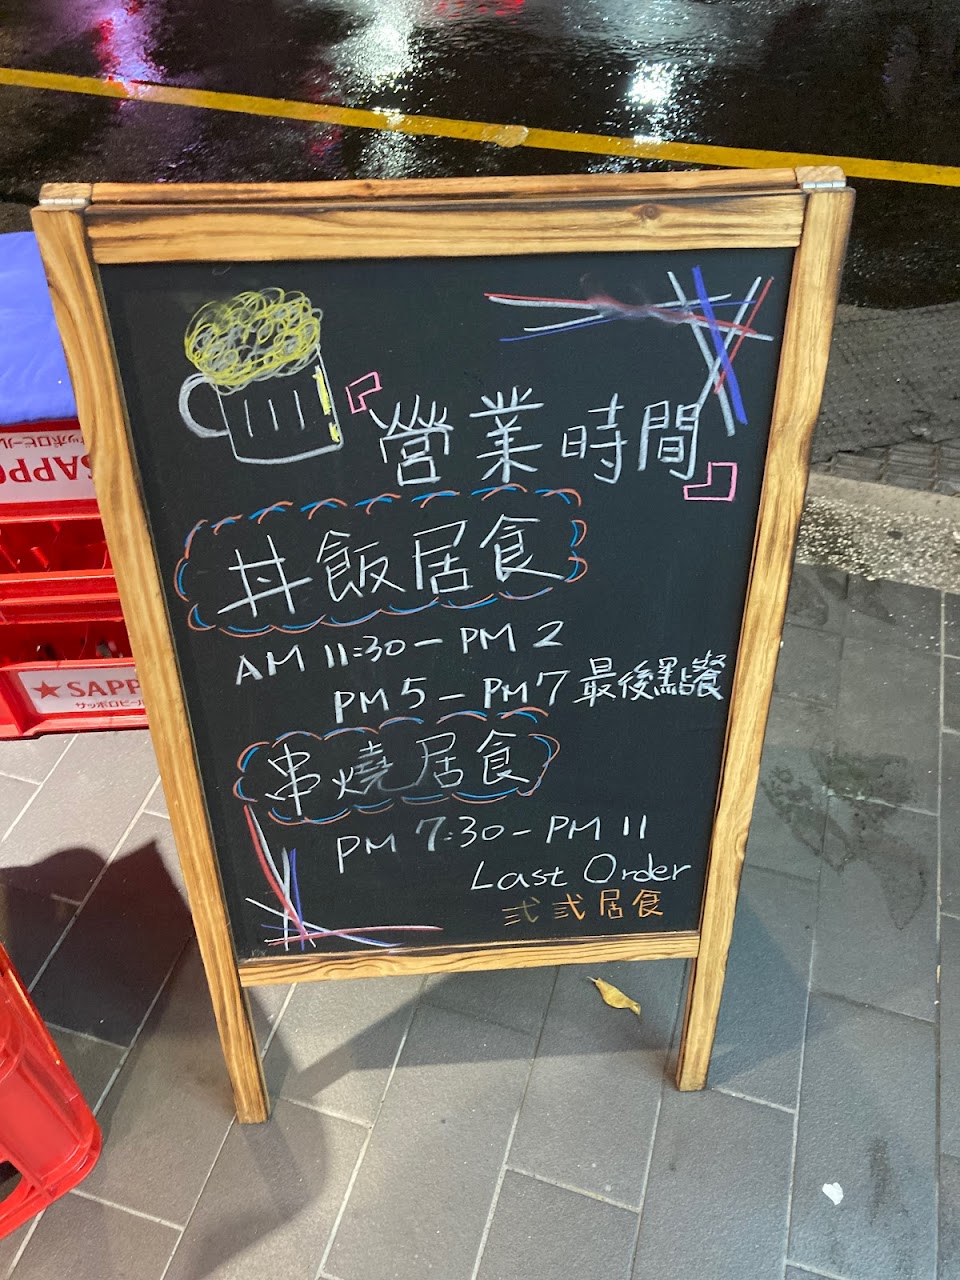 『營業時間』
丼飯居食
AM 11:30 - PM 2
PM 5 - PM 7 最後點餐
串燒居食
PM 7:30 - PM 11
Last Order
弍弍居食
SAPP
サッポロビール
SAPPO
サッポロビール